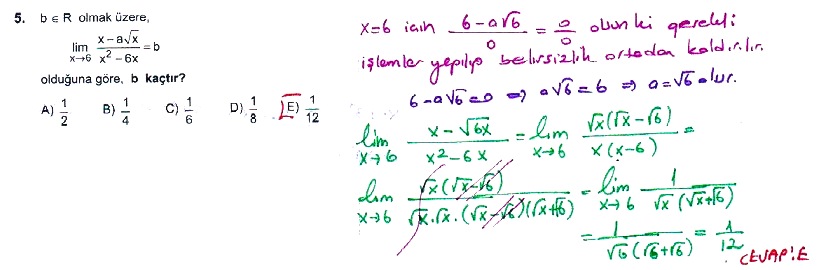 5. b ∈ R olmak üzere,
lim x→6 (x − a√x)/(x² − 6x) = b
olduğuna göre, b kaçtır?
A) 1/2 B) 1/4 C) 1/6 D) 1/8 E) 1/12
x=6 için (6 − a√6)/0 = 0/0 olsun ki gerekli
işlemler yapılıp belirsizlik ortadan kaldırılır.
6 − a√6 = 0 ⇒ a√6 = 6 ⇒ a = √6 olur.
lim x→6 (x − √6x)/(x² − 6x) = lim x→6 √x(√x − √6)/(x(x − 6)) =
lim x→6 √x(√x − √6)/(√x.√x.(√x − √6)(√x + √6)) = lim x→6 1/(√x(√x + √6))
= 1/(√6(√6 + √6)) = 1/12
CEVAP: E